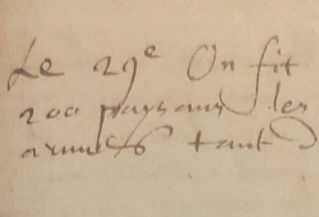 Le 29e On fit
200 paysans les
armes tant